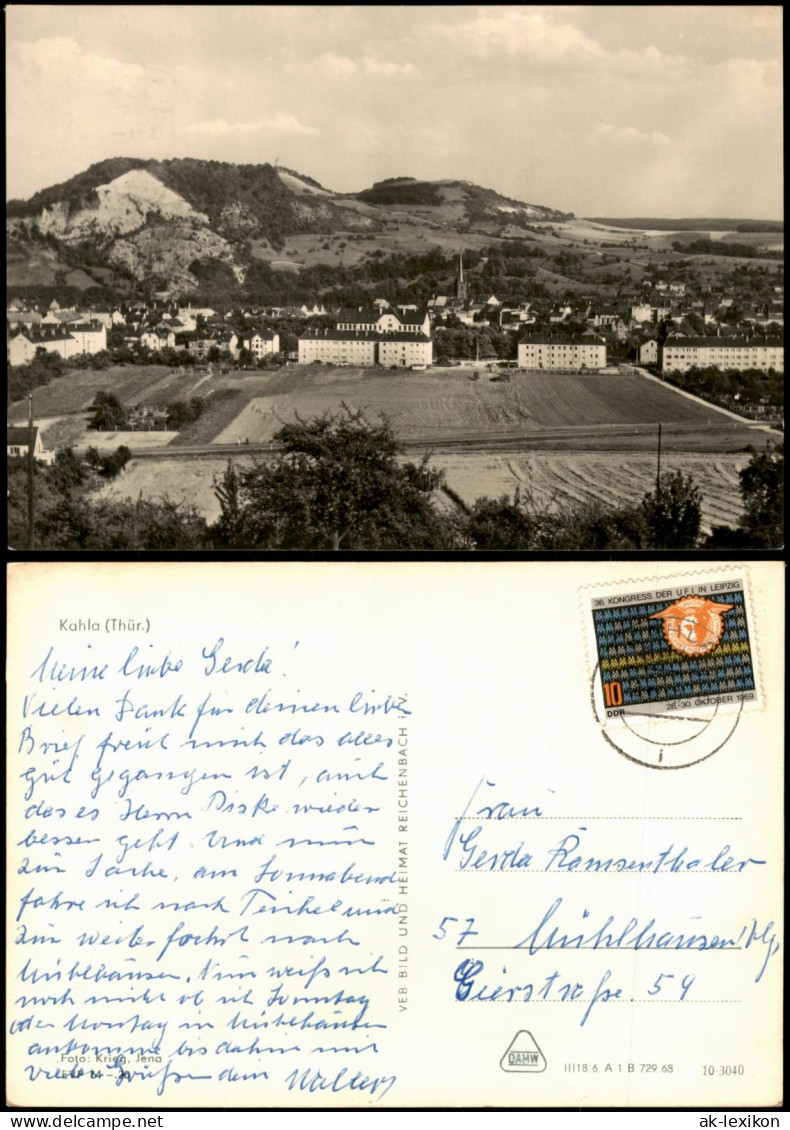 Kahla (Thür.)
Meine liebe Gerda!
Vielen Dank für deinen lieben
Brief freut mich das alles
gut gegangen ist, auch
das es Herrn Diske wieder
bessen geht. Und nun
zur Sache, am Sonnabend
fahre ich nach
zur weiterfahrt nach
Mühlhausen. Nun weiß ich
noch nicht ob ich Sonntag
oder Montag in Mühlhausen
ankomme bis dahin mit
vielen Grüßen dein Walter
Foto: Krieg, Jena
VEB BILD UND HEIMAT REICHENBACH i. V.
36. KONGRESS DER U.F.I. IN LEIPZIG
10
DDR
28.-30. OKTOBER 1969
Frau
Gerda Ramsenthaler
57 Mühlhausen
Gierstraße. 59
DAMW
III18 6 A 1 B 729 68
10-3040
ak-lexikon.com